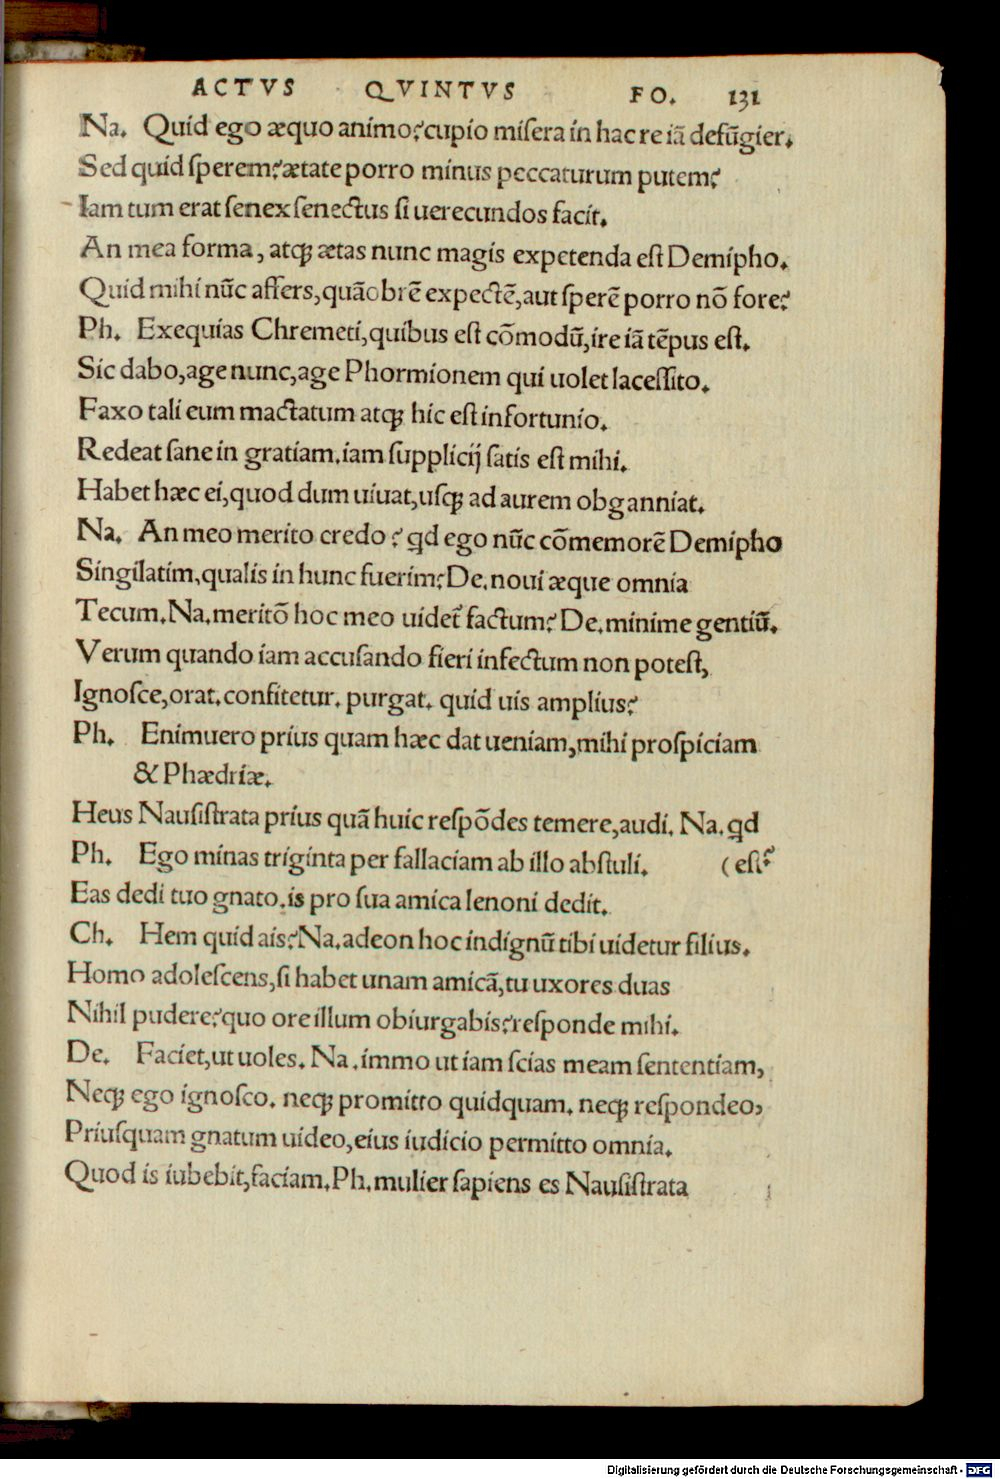 ACTVS QVINTVS FO. 131
Na. Quid ego æquo animo? cupio miſera in hac re iã defũgier.
Sed quid ſperem? ætate porro minus peccaturum putem?
Iam tum erat ſenex ſenectus ſi uerecundos facit.
An mea forma, atqꝫ ætas nunc magis expetenda eſt Demipho.
Quid mihi nũc affers, quãobrẽ expectẽ, aut ſperẽ porro nõ fore?
Ph. Exequias Chremeti, quibus eſt cõmodũ, ire iã tẽpus eſt.
Sic dabo, age nunc, age Phormionem qui uolet laceſſito.
Faxo tali eum mactatum atqꝫ hic eſt infortunio.
Redeat ſane in gratiam. iam ſupplicij ſatis eſt mihi.
Habet hæc ei, quod dum uiuat, uſqꝫ ad aurem obganniat.
Na. An meo merito credo? qd ego nũc cõmemorẽ Demipho
Singilatim, qualis in hunc fuerim? De. noui æque omnia
Tecum. Na. meritõ hoc meo uidet᷑ factum? De. minime gentiũ.
Verum quando iam accuſando fieri infectum non poteſt,
Ignoſce, orat. confitetur. purgat. quid uis amplius?
Ph. Enimuero prius quam hæc dat ueniam, mihi proſpiciam
& Phædriæ.
Heus Nauſiſtrata prius quã huic reſpõdes temere, audi. Na. qd
Ph. Ego minas triginta per fallaciam ab illo abſtuli. (eſt?
Eas dedi tuo gnato. is pro ſua amica lenoni dedit.
Ch. Hem quid ais? Na. adeon hoc indignũ tibi uidetur filius.
Homo adoleſcens, ſi habet unam amicã, tu uxores duas
Nihil pudere? quo ore illum obiurgabis? reſponde mihi.
De. Faciet, ut uoles. Na. immo ut iam ſcias meam ſententiam,
Neqꝫ ego ignoſco. neqꝫ promitto quidquam. neqꝫ reſpondeo,
Priuſquam gnatum uideo, eius iudicio permitto omnia.
Quod is iubebit, faciam. Ph. mulier ſapiens es Nauſiſtrata
Digitalisierung gefördert durch die Deutsche Forschungsgemeinschaft - DFG